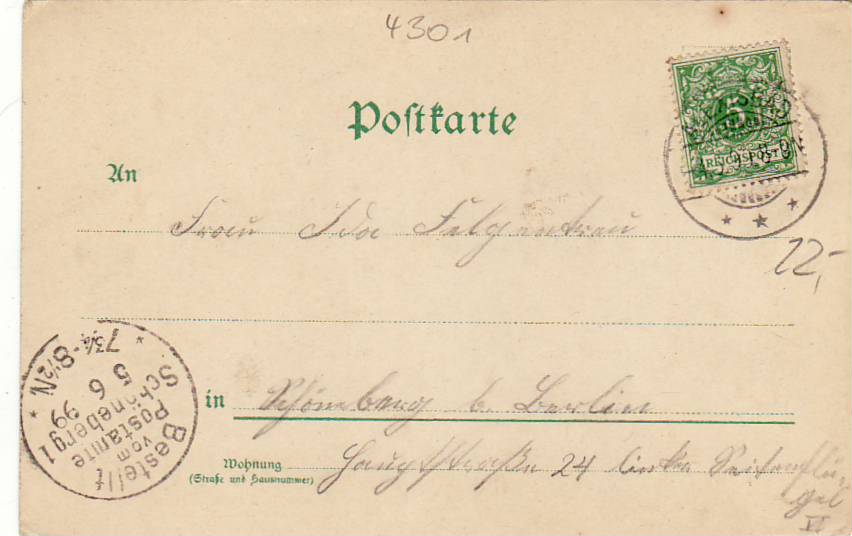 4301
Postkarte
5
REICHSPOST
An
Frau Ida Felgentreu
12,-
in Schöneberg b. Berlin
Wohnung
(Straße und Hausnummer)
Hauptstraße 24 linker Seitenflü-
gel
Bestellt
vom
Postamte
Schöneberg 1
5 6 99
7 3/4-8 1/2N.